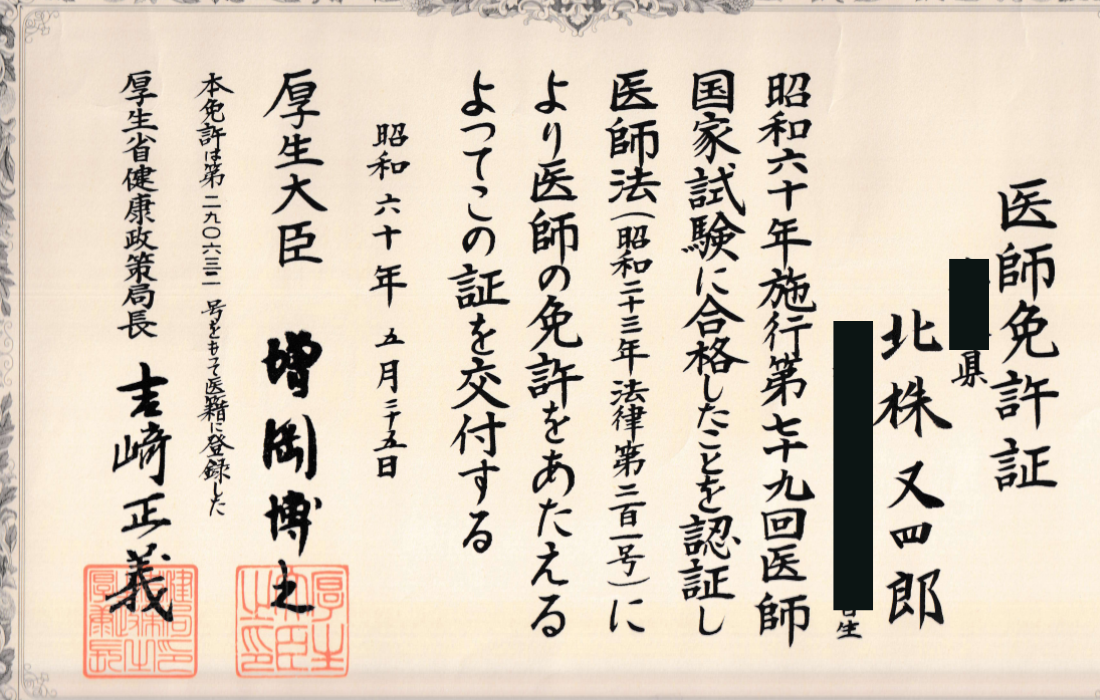 医師免許証
県
北株又四郎
日生
昭和六十年施行第七十九回医師
国家試験に合格したことを認証し
医師法(昭和二十三年法律第二百一号)に
より医師の免許をあたえる
よつてこの証を交付する
昭和六十年五月二十五日
厚生大臣 増岡博之
本免許は第二九〇六三二号をもつて医籍に登録した
厚生省健康政策局長 吉崎正義